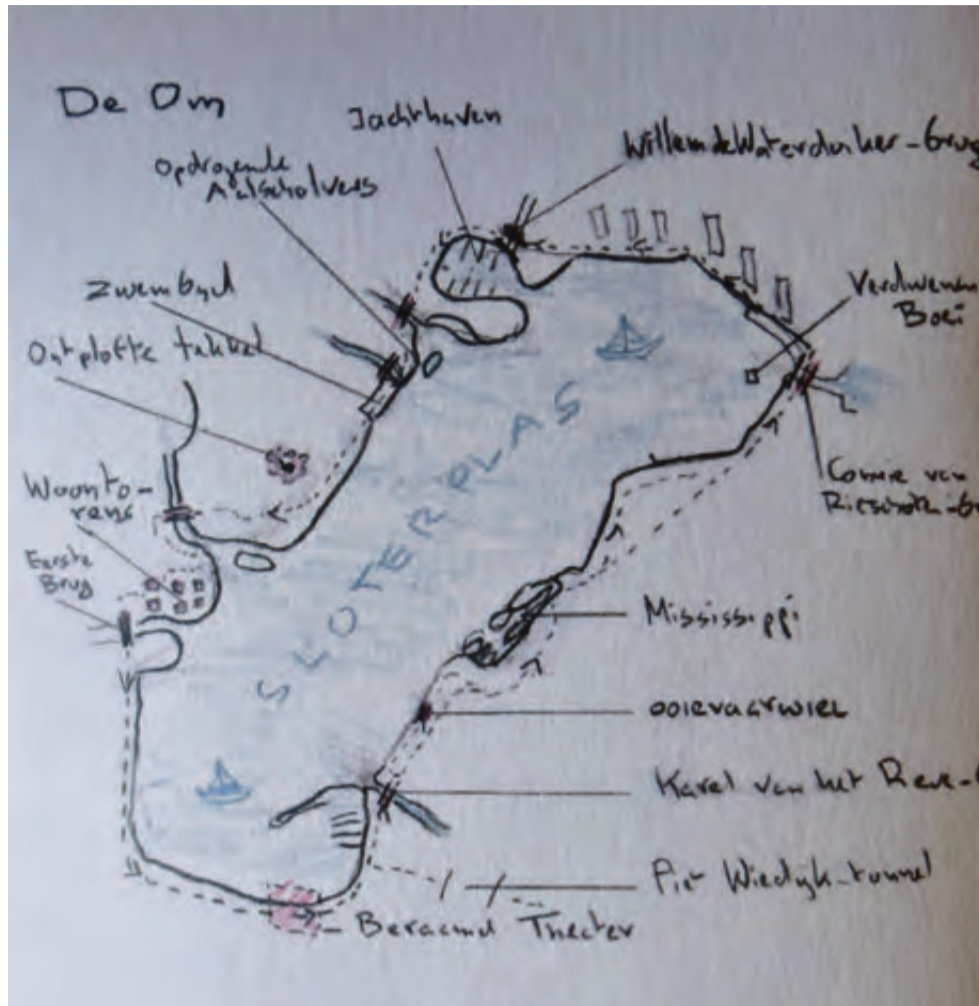 De Om
Jachthaven
Willem de Waterdrinker-brug
Opdrogende
Aalscholvers
Zwembad
Ontplofte takkel
Verdwenen
Boei
Woonto-
rens
Eerste
Brug
Connie van
Rietschoten-b
SLOTERPLAS
Mississippi
ooievaarwiel
Karel van het Reve-b
Piet Wiedijk-tunnel
Beraamd Theater